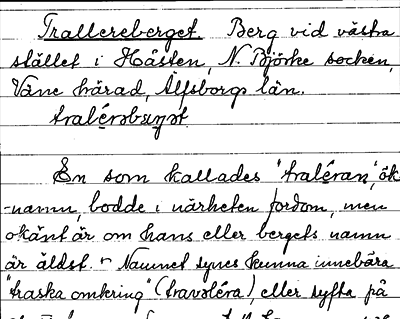 Trallereberget. Berg vid västra
stället i Håsten, N. Björke socken,
Väne härad, Älfsborgs län.
En som kallades "traléran", ök-
-namn, bodde i närheten fordom, men
okänt är om hans eller bergets namn
är äldst. Namnet synes kunna innebära
"traska omkring" (travaléra) eller syfta på